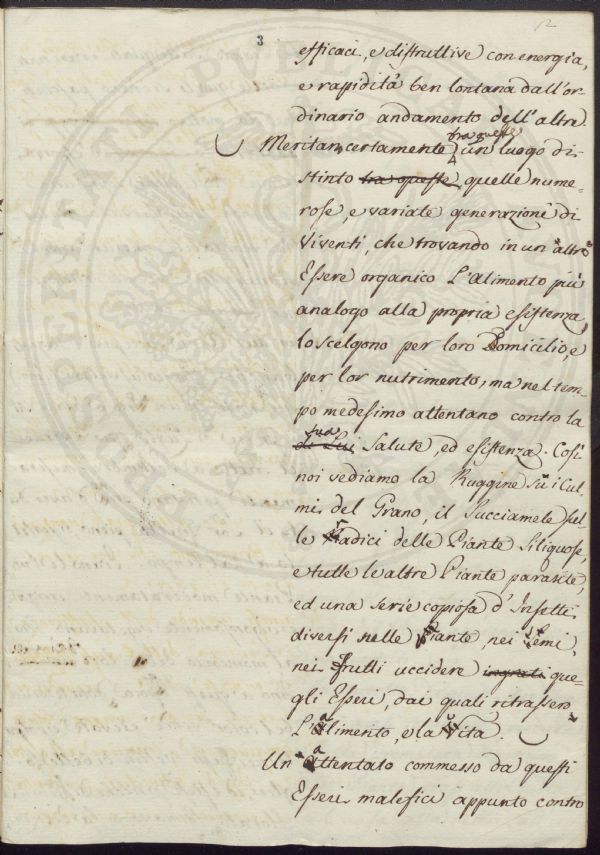 12
3
efficaci, e distruttive con energia,
e rapidità ben lontana dall'or-
dinario andamento dell'altre.
Meritan certamente tra queste un luogo di-
stinto tra queste quelle nume-
rose, e variate generazioni di
Viventi, che trovando in un altro
Essere organico l'Alimento più
analogo alla propria esistenza,
lo scelgono per loro Domicilio, e
per lor nutrimento, ma nel tem-
po medesimo attentano contro la
di Lui sua Salute, ed esistenza. Così
noi vediamo la Ruggine su i Cul-
mi del Grano, il Succiamele sul-
le Radici delle Piante Siliquose,
e tutte le altre Piante parasite,
ed una serie copiosa d'Insetti
diversi nelle Piante, nei Semi,
nei frutti uccidere ingrati que-
gli Esseri, dai quali ritrassero
l'alimento, e la Vita.
Un attentato commesso da questi
Esseri malefici appunto contro